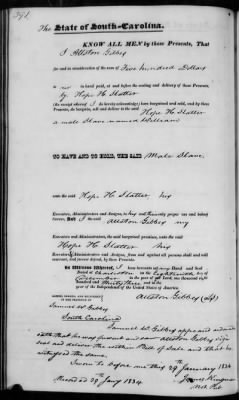 391
The State of South-Carolina.
KNOW ALL MEN by these Presents, That
I Allston Gibbes
for and in consideration of the sum of Five hundred Dollars
to me in hand paid, at and before the sealing and delivery of these Presents,
by Hope H. Slatter
(the receipt whereof I do hereby acknowledge) have bargained and sold, and by these
Presents, do bargain, sell and deliver to the said Hope H Slatter
a male slave named William
TO HAVE AND TO HOLD, THE SAID Male Slave,
unto the said Hope H. Slatter his
Executors, Administrators and Assigns, to his and their only proper use and behoof
forever. And I the said Allston Gibbes my
Executors and Administrators, the said bargained premises, unto the said
Hope H. Slatter his
Executors, Administrators and Assigns, from and against all persons shall and will
warrant, and forever defend, by these Presents.
In Witness Whereof, I have hereunto set my Hand and Seal
Dated at Charleston on the
in the year of our Lord one thousand eight
hundred and thirty three and in the
year of the Independence of the United States of America.
SIGNED, SEALED, AND DELIVERED
IN THE PRESENCE OF
Allston Gibbes (LS)
Samuel W. Gibbes
South Carolina
Samuel W. Gibbes appeared and made
oath that he was present and saw Allston Gibbes sign
seal and deliver the within Bill of Sale and that he
witnessed the same.
Sworn to before me this 29th January 1834
Recorded 29 Jany 1834